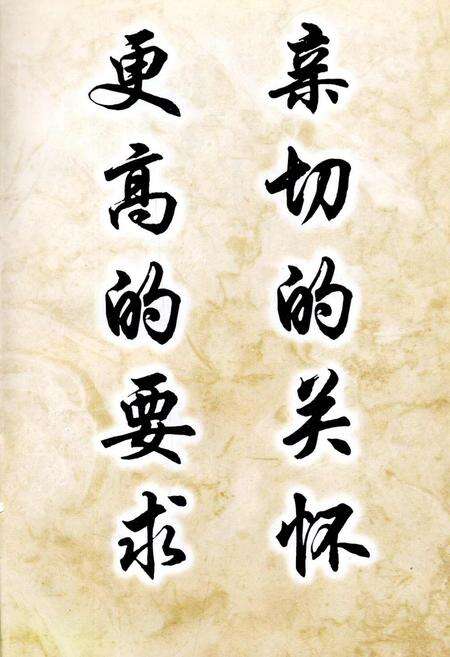 亲切的关怀
更高的要求